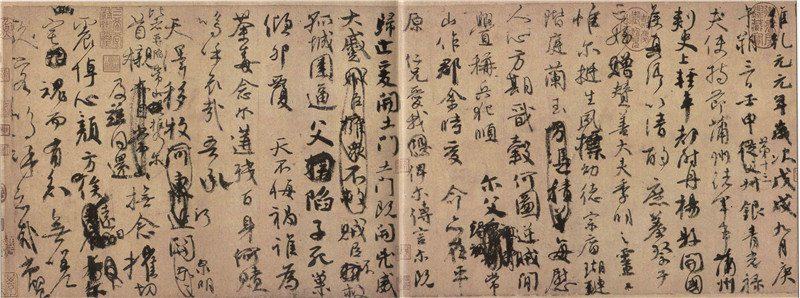 維乾元元年歲次戊戌九月庚
午朔三日壬申第十三從父叔銀青光祿
夫使持節蒲州諸軍事蒲州
刺史上輕車都尉丹楊縣開國
侯真卿以清酌庶羞祭于
亡姪贈贊善大夫季明之靈曰
惟爾挺生夙標幼德宗廟瑚璉
階庭蘭玉方憑積善每慰
人心方期戩穀何圖逆賊閒
釁稱兵犯順爾父竭誠常
山作郡余時受命亦在平
原仁兄愛我俾爾傳言爾既
歸止爰開土門土門既開兇威
大蹙賊臣不救
孤城圍逼父陷子死巢
傾卵覆天不悔禍誰為
荼毒念爾遘殘百身何贖
嗚呼哀哉吾承
天澤移牧河關泉明
比者再陷常山攜爾
首櫬及茲同還撫念摧切
震悼心顏方俟遠日
宅魂而有知無嗟
久客嗚呼哀哉尚饗